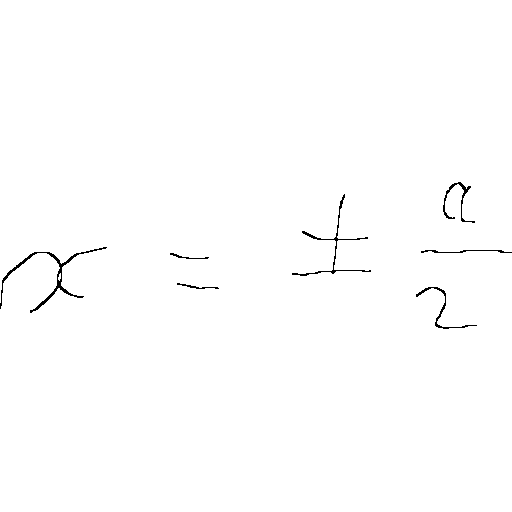 x = ± a/2